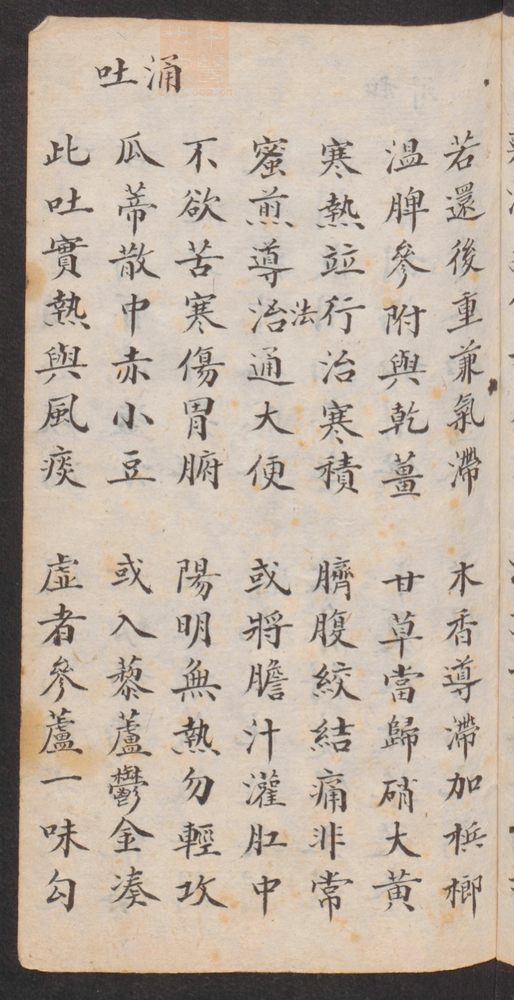 若還後重兼氣滯　木香導滯加梹榔
温脾參附與乾薑　甘草當歸硝大黄
寒熱竝行治寒積　臍腹絞結痛非常
蜜煎導法治通大便　或將膽汁灌肛中
不欲苦寒傷胃腑　陽明無熱勿輕攻
涌吐
瓜蒂散中赤小豆　或入藜蘆鬱金凑
此吐實熱與風痰　虛者參蘆一味勾